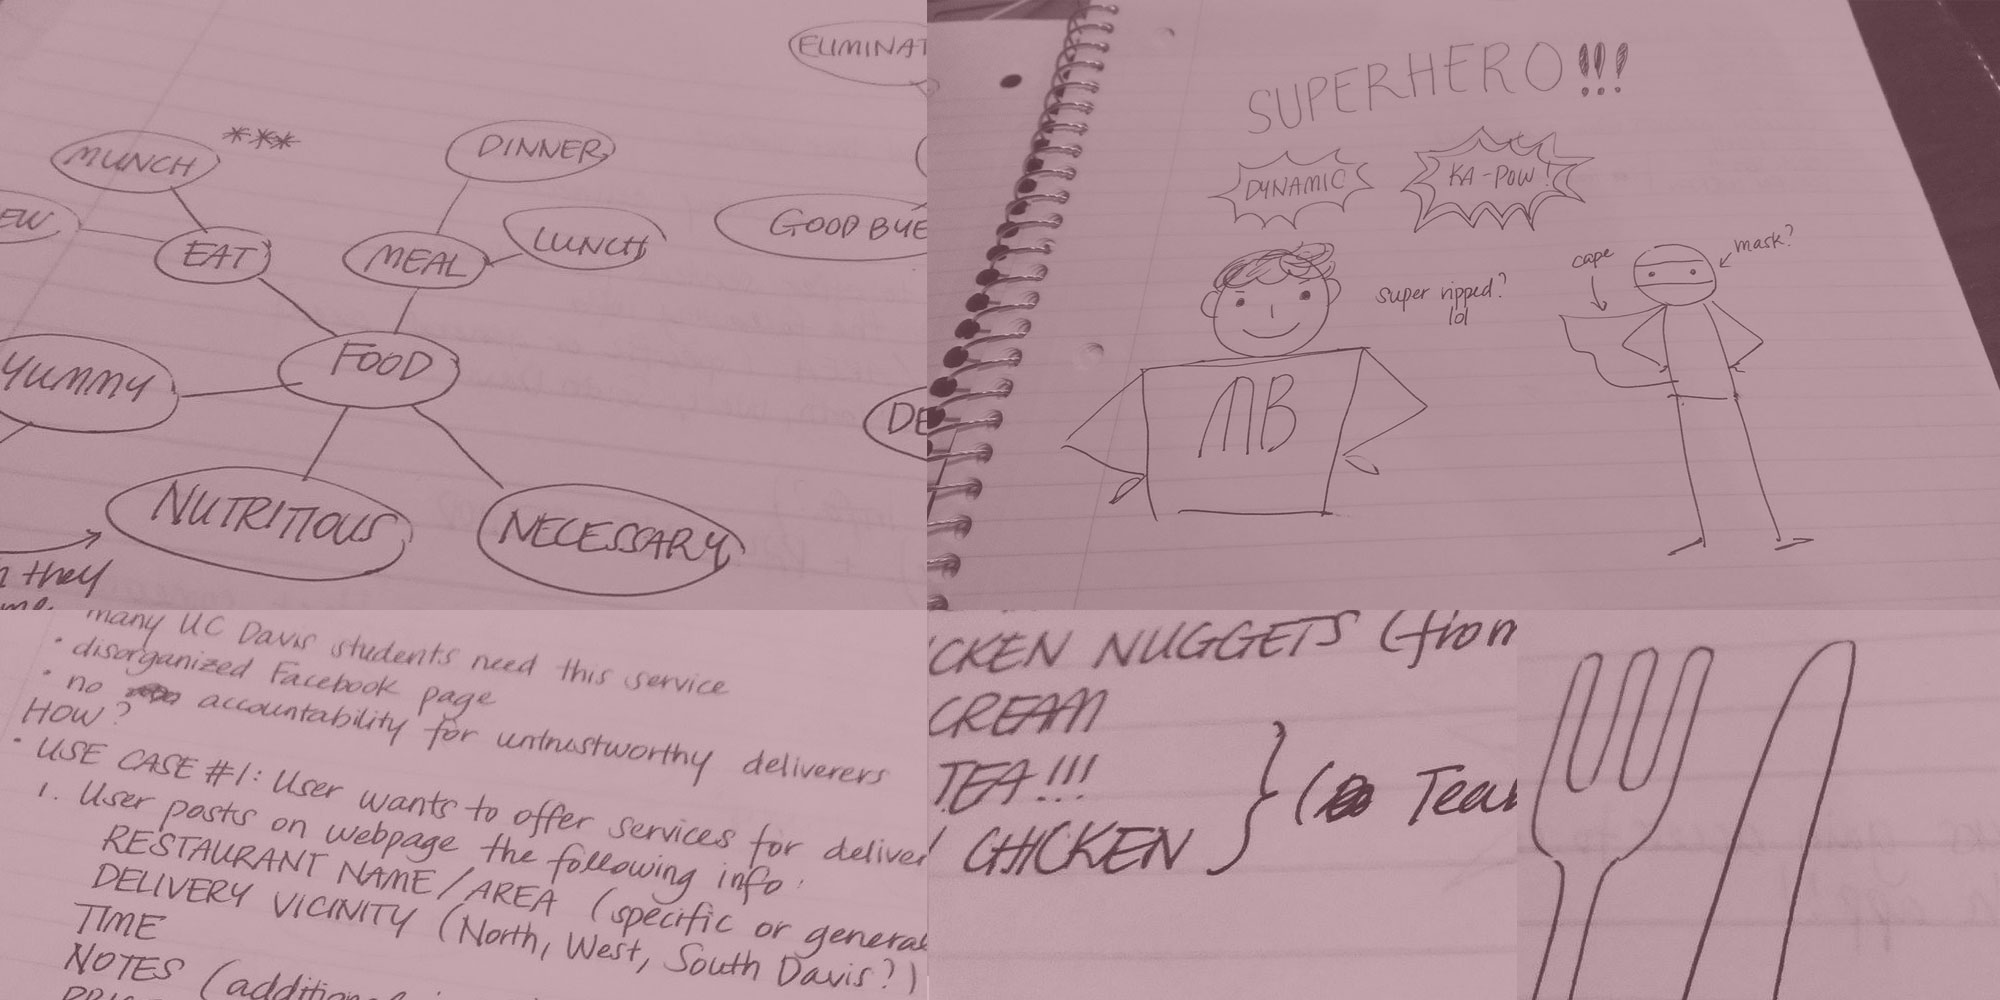 MUNCH
***
DINNER
LUNCH
EAT
MEAL
GOOD BYE
YUMMY
FOOD
NUTRITIOUS
NECESSARY
they
SUPERHERO!!!
DYNAMIC
KA-POW!
cape
mask?
super ripped?
lol
MB
many UC Davis students need this service
• disorganized Facebook page
• no accountability for untrustworthy deliverers
HOW?
• USE CASE #1: User wants to offer services for deliver
1. User posts on webpage the following info:
RESTAURANT NAME/AREA (specific or general
DELIVERY VICINITY (North, West, South Davis?)
TIME
NOTES (additional
CKEN NUGGETS (from
CREAM
TEA!!!
CHICKEN } (